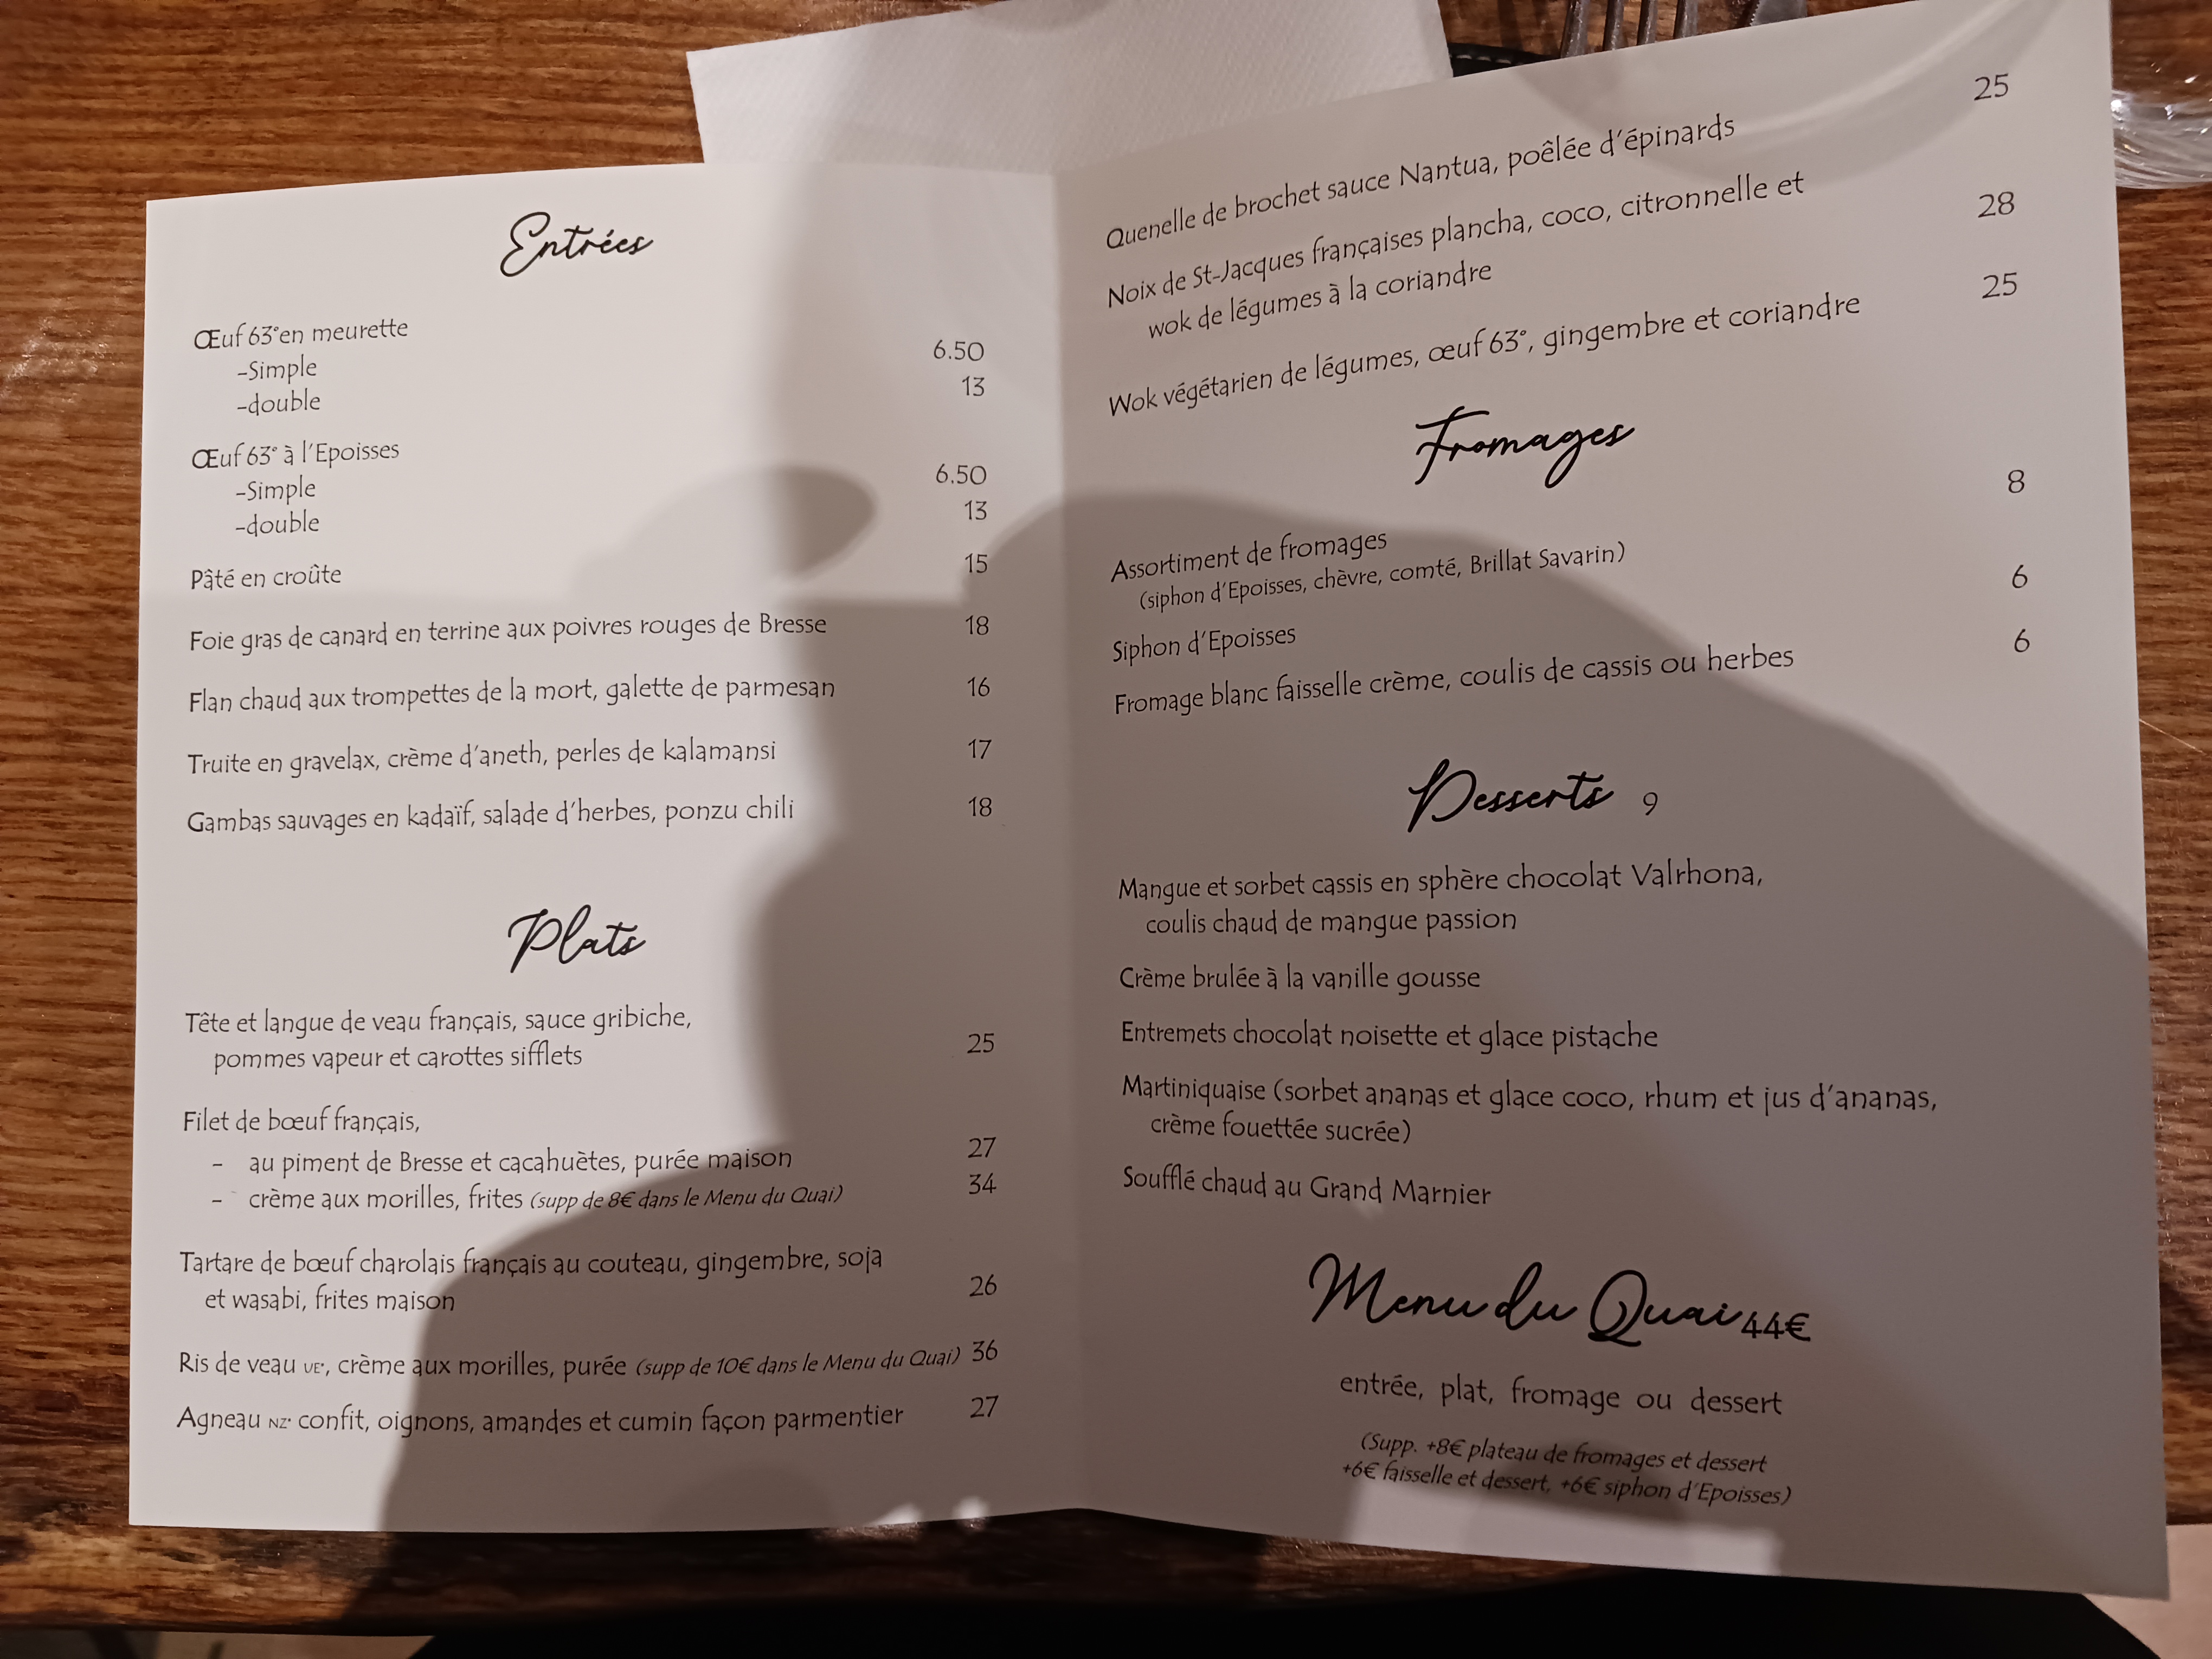 Entrées
Œuf 63° en meurette
-Simple 6.50
-double 13
Œuf 63° à l'Epoisses
-Simple 6.50
-double 13
Pâté en croûte 15
Foie gras de canard en terrine aux poivres rouges de Bresse 18
Flan chaud aux trompettes de la mort, galette de parmesan 16
Truite en gravelax, crème d'aneth, perles de kalamansi 17
Gambas sauvages en kadaïf, salade d'herbes, ponzu chili 18
Plats
Tête et langue de veau français, sauce gribiche,
pommes vapeur et carottes sifflets 25
Filet de bœuf français,
- au piment de Bresse et cacahuètes, purée maison 27
- crème aux morilles, frites (supp de 8€ dans le Menu du Quai) 34
Tartare de bœuf charolais français au couteau, gingembre, soja
et wasabi, frites maison 26
Ris de veau UE*, crème aux morilles, purée (supp de 10€ dans le Menu du Quai) 36
Agneau NZ* confit, oignons, amandes et cumin façon parmentier 27
Quenelle de brochet sauce Nantua, poêlée d'épinards 25
Noix de St-Jacques françaises plancha, coco, citronnelle et
wok de légumes à la coriandre 28
Wok végétarien de légumes, œuf 63°, gingembre et coriandre 25
Fromages
Assortiment de fromages 8
(siphon d'Epoisses, chèvre, comté, Brillat Savarin)
Siphon d'Epoisses 6
Fromage blanc faisselle crème, coulis de cassis ou herbes 6
Desserts 9
Mangue et sorbet cassis en sphère chocolat Valrhona,
coulis chaud de mangue passion
Crème brulée à la vanille gousse
Entremets chocolat noisette et glace pistache
Martiniquaise (sorbet ananas et glace coco, rhum et jus d'ananas,
crème fouettée sucrée)
Soufflé chaud au Grand Marnier
Menu du Quai 44€
entrée, plat, fromage ou dessert
(Supp. +8€ plateau de fromages et dessert
+6€ faisselle et dessert, +6€ siphon d'Epoisses)